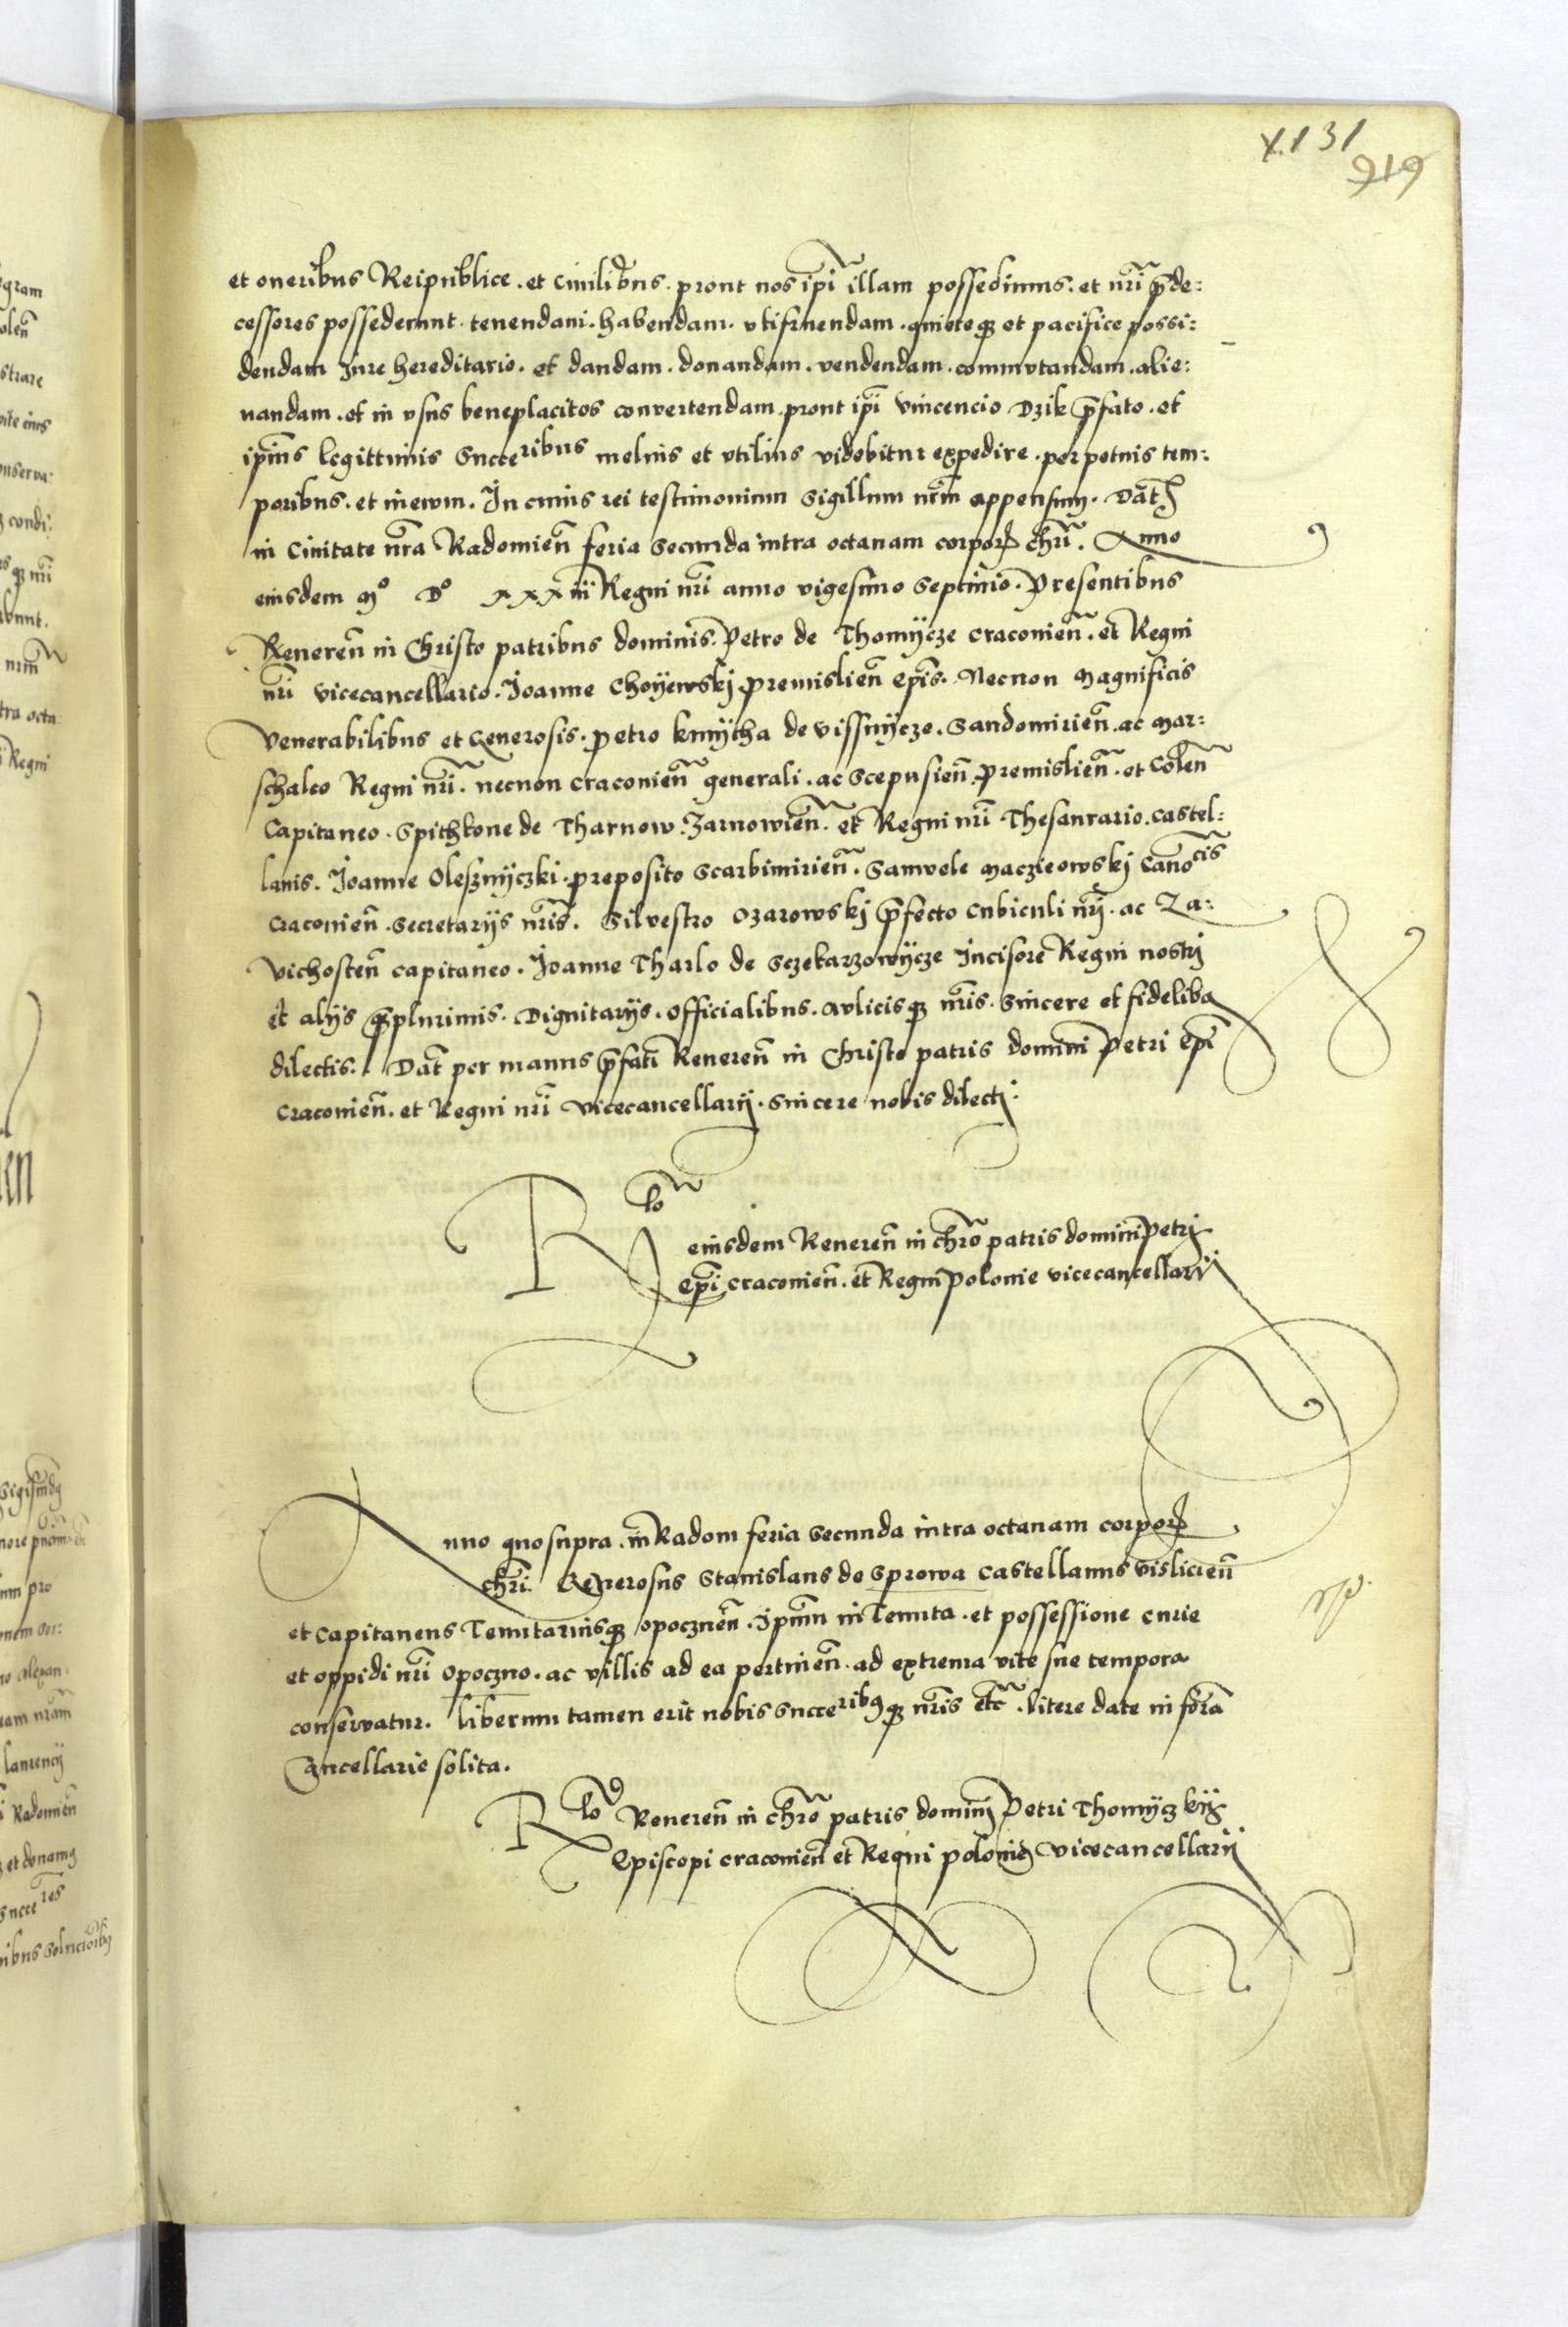 X.131
919
et oneribus Reipublice . et Ciuilibus . prout nos ipi illam possedimus . et nri pde:
cessores possederunt . tenendam . habendam . vtifruendam . quieteqз et pacifice possi:
dendam Jure hereditario . et dandam . donandam . vendendam . commvtandam . alie:
nandam . et in vsus beneplacitos convertendam . prout ipi Vincencio Dzik pfato . et
ipius legittimis Succeribus melius et vtilius videbitur expedire . perpetuis tem:
poribus . et inewm . In cuius rei testimonium Sigillum nrm appensum . Dat
in Ciuitate nra Radomien feria Secunda intra octauam corpor chri . Anno
eiusdem Mº Dº xxxiij Regni nri anno vigesimo Septimo . Presentibus
Reueren in Christo patribus dominis . Petro de Thomycze Craconien . et Regni
nri Vicecancellario . Joanne Choyenskj Premislien Epis . Necnon Magnificis
Venerabilibus et Generosis . Petro Kmytha de Vissnycze . Sandomirien . ac Mar:
schalco Regni nri . necnon Craconien generali . ac Scepusien Premislien . et Colen
Capitaneo . Spithkone de Tharnow . Zarnowien . et Regni nri Thesaurario . Castel:
lanis . Joanne Olesznyczki . preposito Scarbimirien . Samvele Maczieowskj Canocis
Craconien . Secretarijs nris . Silvestro Ozarowskj pfecto Cubiculi nrj . ac Za:
vichosten capitaneo . Joanne Tharlo de Sczekarzowycze Jncisore Regni nostrj
et alijs qplurimis . Dignitarijs . Officialibus . avlicisqз nris . Sincere et fidelibз
dilectis . Dat per manus pfati Reueren in Christo patris domini Petri Epi
Craconien . et Regni nri Vicecancellarij . Sincere nobis dilectj .
Rlo eiusdem Reueren in chro patris domini Petrj
Epi Craconien . et Regni Polonie vicecancellarij
Anno quosupra . in Radom feria Secunda intra octauam corpor
chri . Generosus Stanislaus de Sprowa Castellanus Vislicien
et Capitaneus Tenutariusqз Opocznen . Ipmm in Tenuta . et possessione curie
et oppidi nri Opoczno . ac villis ad ea pertinen . ad extrema vite sue tempora
conservatur . liberum tamen erit nobis Succeribзqз nris etc . litere date in fora
Cancellarie solita .
Rlo Reueren in chro patris dominj Petri Thomyczkij
Episcopi Craconien et Regni Polonie Vicecancellarij